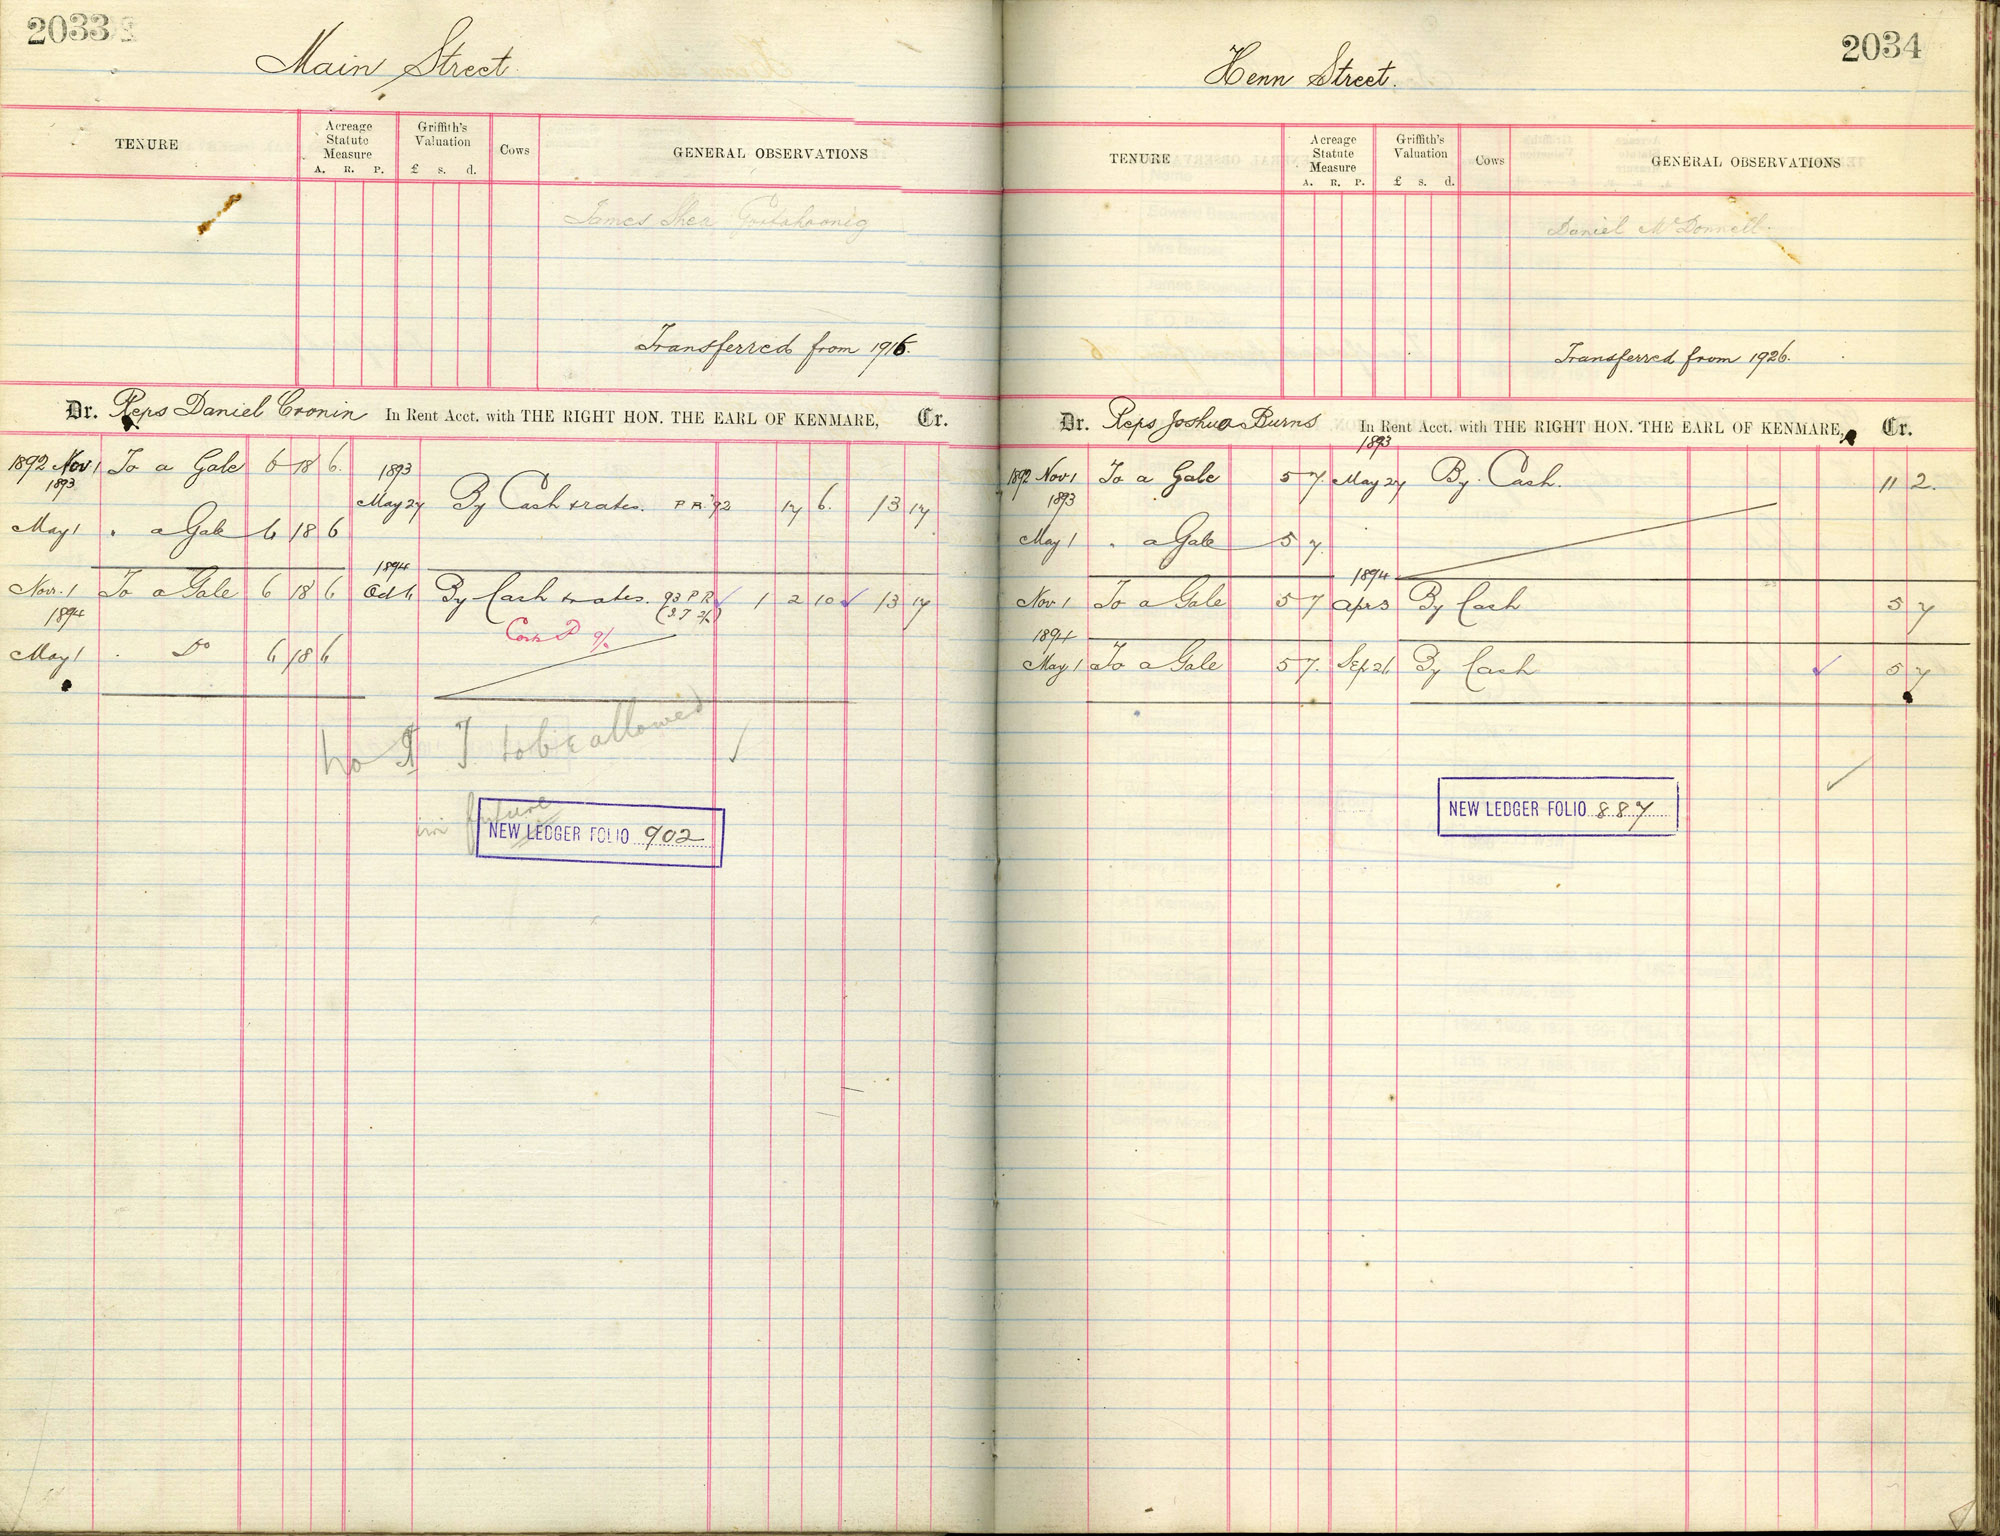 2033
Main Street.
TENURE
Acreage Statute Measure
A. R. P.
Griffith's Valuation
£ s. d.
Cows
GENERAL OBSERVATIONS
James Shea
Transferred from 1916.
Dr. Reps Daniel Cronin In Rent Acct. with THE RIGHT HON. THE EARL OF KENMARE, Cr.
1892 Nov 1 To a Gale 6 18 6.
1893 1893
May 27 By Cash & rates. P R '92 17 6. 13 17
May 1 " a Gale 6 18 6
1894
Nov. 1 To a Gale 6 18 6 Oct 6 By Cash & rates. 93 P R 1 2 10 13 17
1894
May 1 " Do 6 18 6
no I T to be allowed
in future
NEW LEDGER FOLIO 902
2034
Henn Street.
TENURE
Acreage Statute Measure
A. R. P.
Griffith's Valuation
£ s. d.
Cows
GENERAL OBSERVATIONS
Daniel McDonnell.
Transferred from 1926.
Dr. Reps Joshua Burns In Rent Acct. with THE RIGHT HON. THE EARL OF KENMARE, Cr.
1893
1892 Nov 1 To a Gale 5 7. May 27 By Cash. 11 2.
1893
May 1 " a Gale 5 7.
1894
Nov 1 To a Gale 5 7 Apr 3 By Cash 5 7
1894
May 1 To a Gale 5 7. Sep 26 By Cash 5 7
NEW LEDGER FOLIO 887